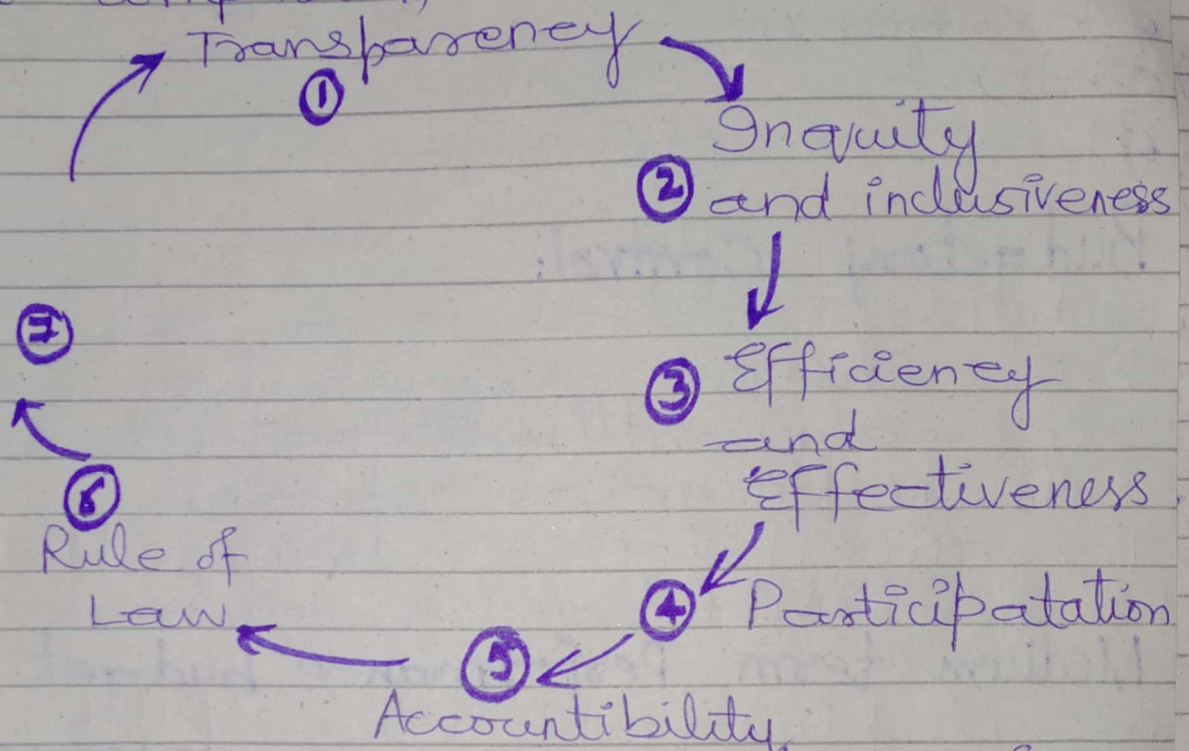 Transparency
①
Inquity
② and inclusiveness
③ Efficiency
and
Effectiveness
④ Participatation
⑤
Accountibility
⑥
Rule of
Law
⑦